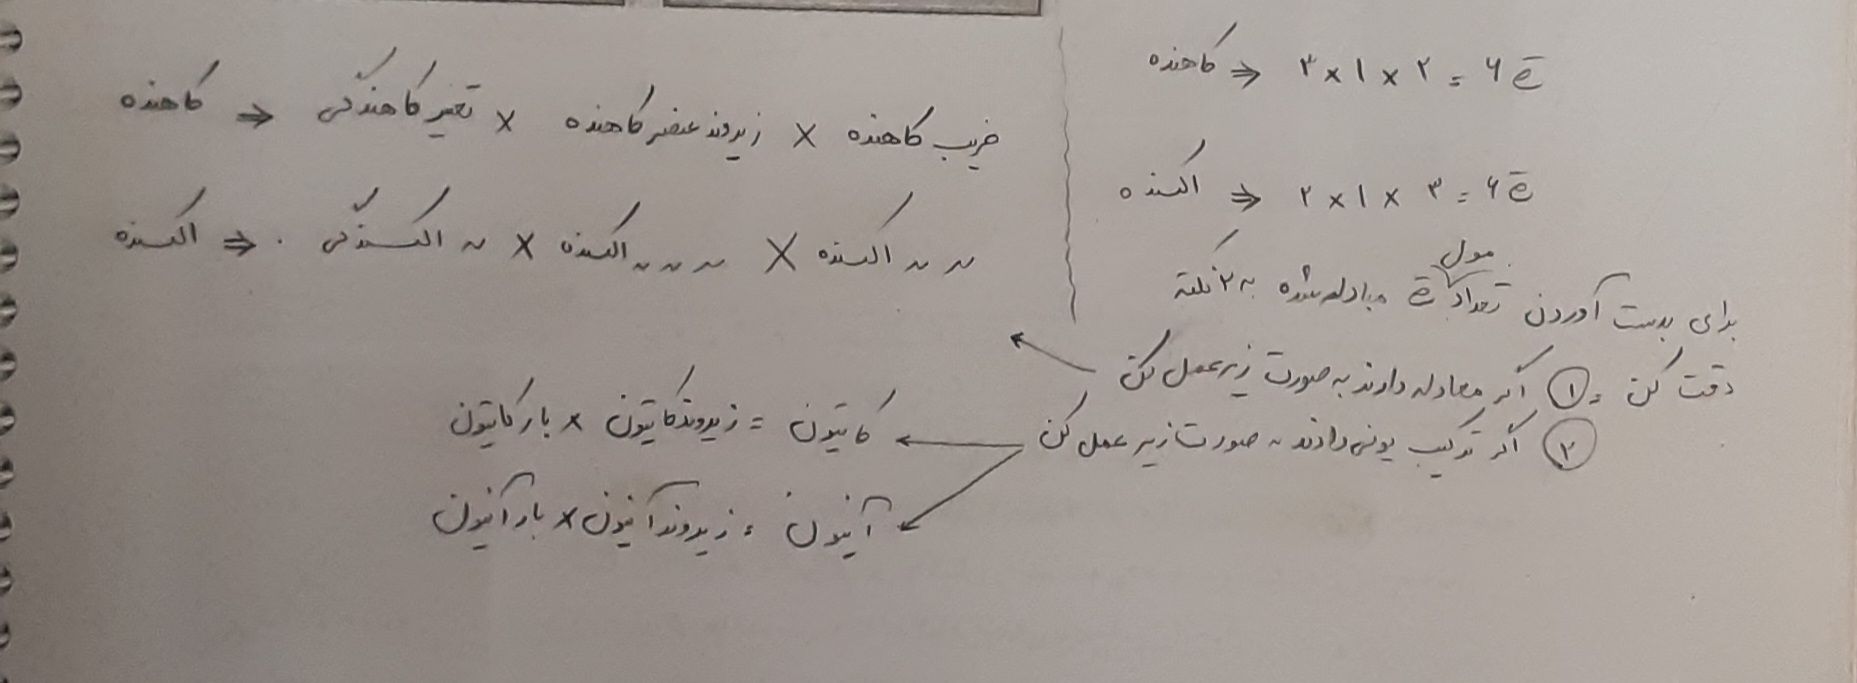 کاهنده ⇐ ۳ × ۱ × ۲ = ۶ē
اکسنده ⇐ ۲ × ۱ × ۳ = ۶ē
برای بدست آوردن تعداد مول ē مبادله شده به ۲ نکته
دقت کن : ① اگر معادله دادند به صورت زیر عمل کن
② اگر ترکیب یونی دادند به صورت زیر عمل کن
ضریب کاهنده × زیروند عنصر کاهنده × تغیر کاهندگی ⇐ کاهنده
〃 〃 اکسنده × 〃 〃 〃 اکسنده × 〃 اکسندگی ⇐ اکسنده
کاتیون = زیروند کاتیون × بار کاتیون
آنیون = زیروند آنیون × بار آنیون